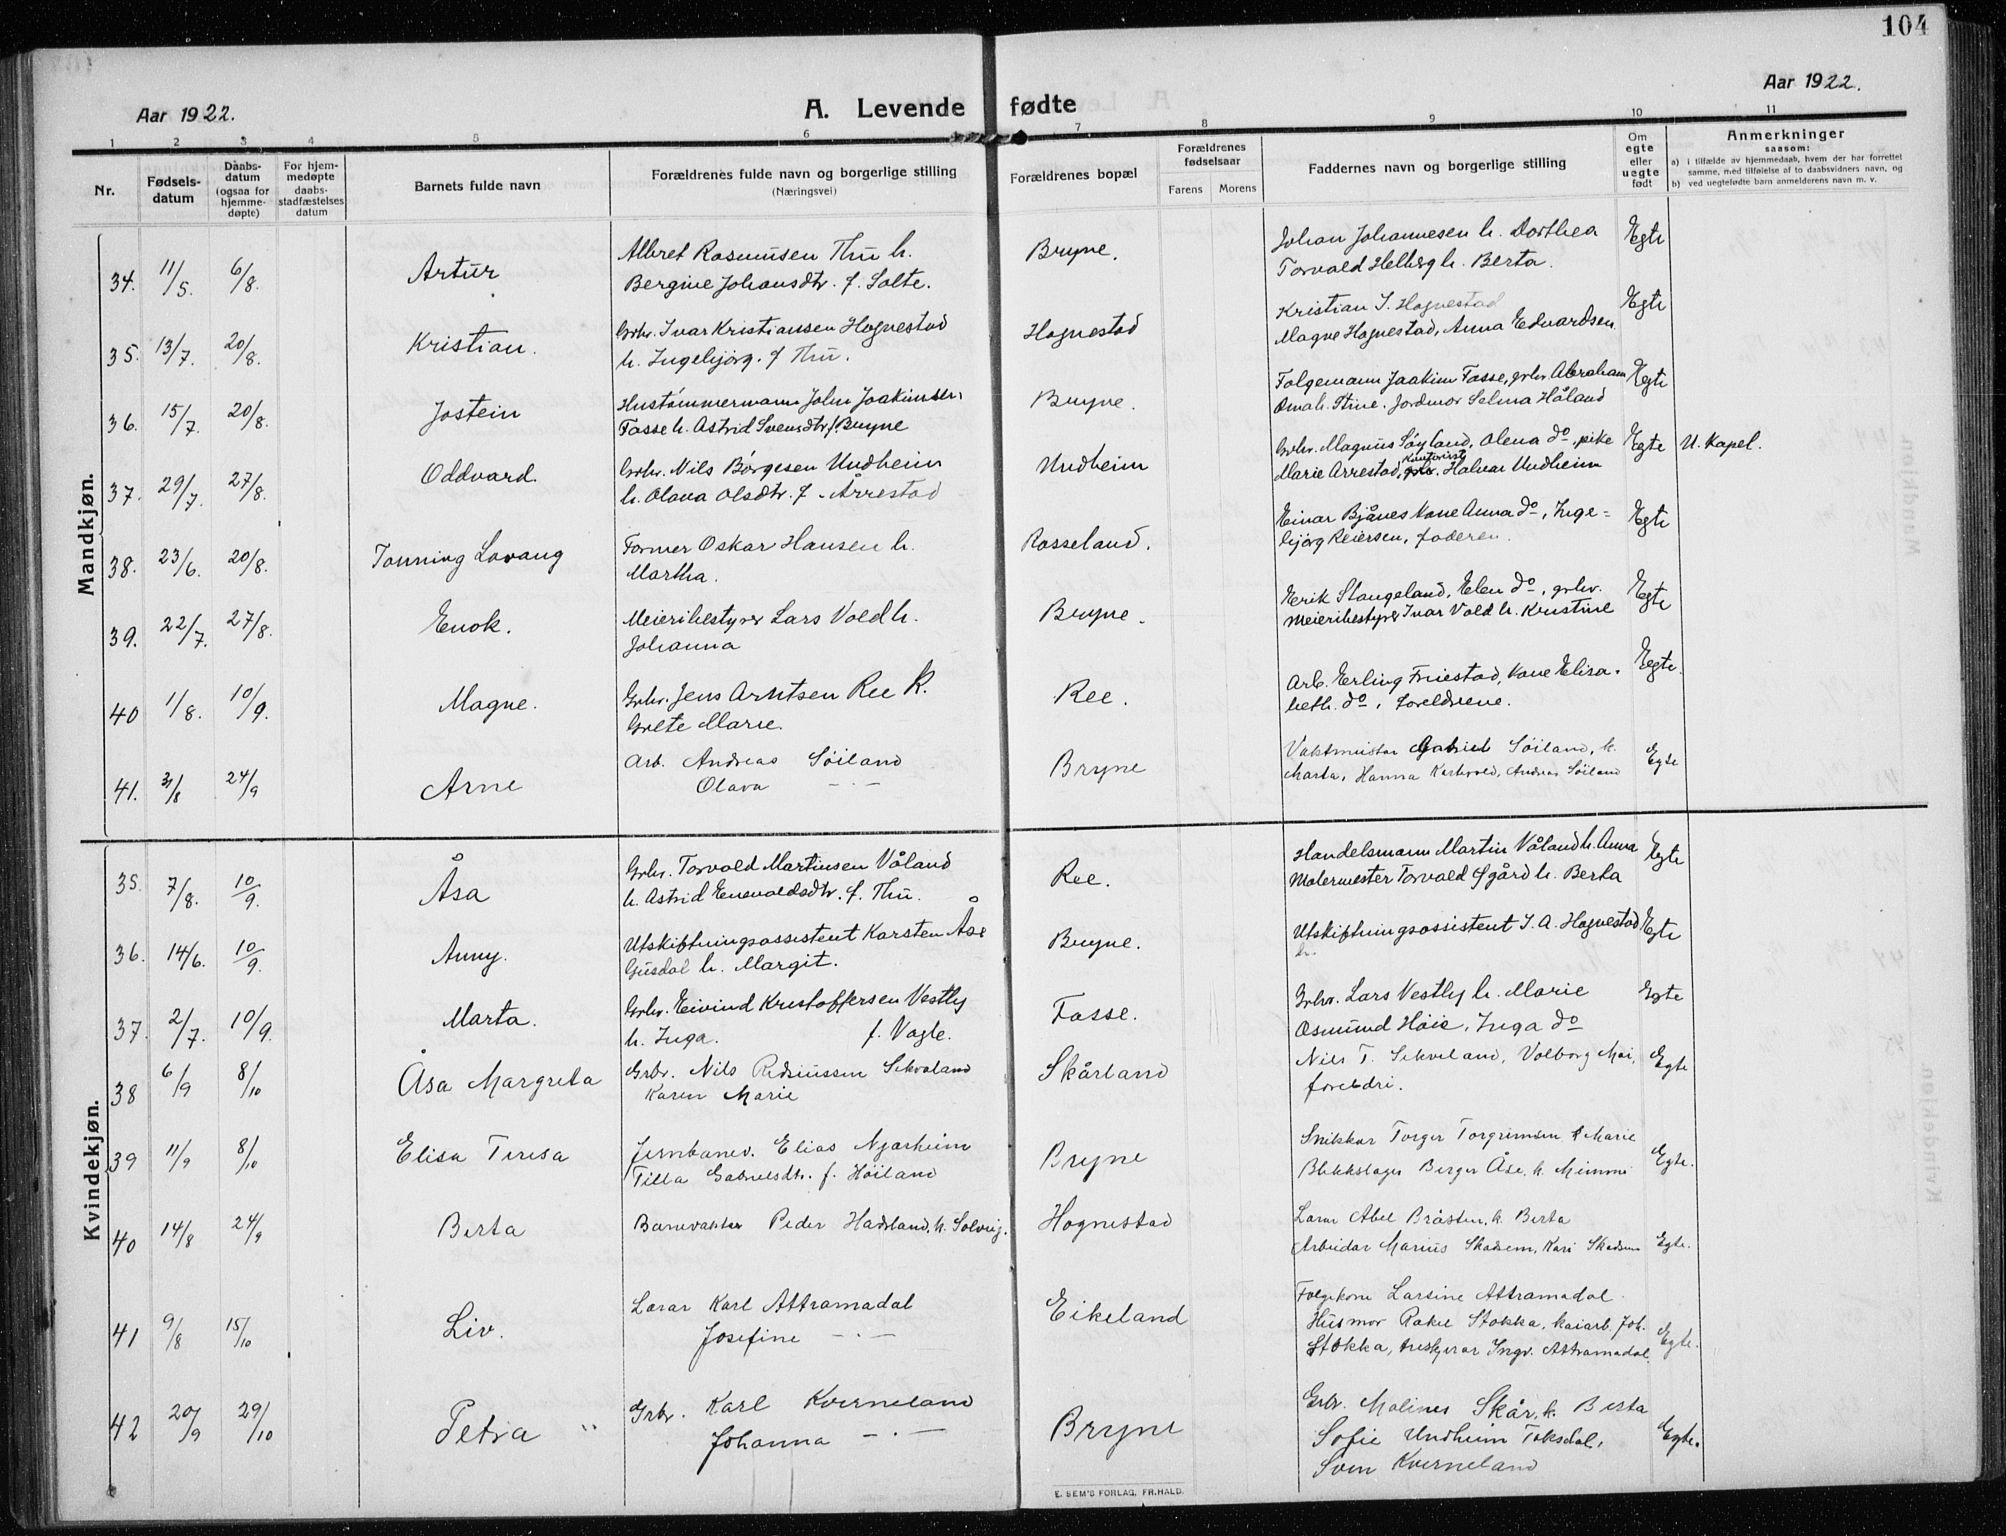 104
Aar 1922.
A. Levende fødte
Aar 1922.
1 2 3 4 5 6 7 8 9 10 11
Nr.
Fødsels-
datum
Daabs-
datum
(ogsaa for
hjemme-
døpte)
For hjem-
medøpte
daabs-
stadfæstelses
datum
Barnets fulde navn
Forældrenes fulde navn og borgerlige stilling
(Næringsvei)
Forældrenes bopæl
Forældrenes
fødselsaar
Farens Morens
Faddernes navn og borgerlige stilling
Om
egte
eller
uegte
født
Anmerkninger
saasom:
a) i tilfælde av hjemmedaab, hvem der har forrettet
samme, med tilføielse af to daabsvidners navn, og
b) ved uegtefødte barn anmelderens navn m. v.
Mandkjøn.
34. 11/5. 6/8. Artur
Albret Rasmussen Thu h.
Bergine Johansdtr. f. Salte.
Bryne.
Johan Johannesen h. Dorthea
Torvald Helberg h. Berta.
Egte
35. 13/7. 20/8. Kristian.
Grbr. Ivar Kristiansen Hognestad
h. Ingebjørg. f Thu.
Hognestad
Kristian I. Hognestad
Magne Hognestad, Anna Edvardsen
Egte
36. 15/7. 20/8. Jostein
Hustømmermann John Joakimsen
Fosse h. Astrid Svensdtr. f. Bryne
Bryne.
Folgemann Joakim Fosse, grbr Abraham
Oma h. Stine. Jordmor Selma Håland
Egte
37. 29/7. 27/8. Oddvard.
Grbr. Nils Børgesen Undheim
h. Olava Olsdtr. f. Årrestad
Undheim
Grbr. Magnus Søyland, Olena do, pike
Marie Arrestad, kontorist grbr. Halvar Undheim
Egte U. Kapel.
38. 23/6. 20/8. Tonning Lovang
Former Oskar Hansen h.
Martha.
Rosseland.
Einar Bjånes Kone Anna do, Inge=
bjørg Reiersen, faderen.
Egte
39. 22/7. 27/8. Enok.
Meieribestyrer Lars Vold h.
Johanna
Bryne.
Erik Stangeland, Elen do, grbr.
Meieribestyrer Ivar Vold h. Kristine
Egte
40 1/8. 10/9. Magne.
Grbr. Jens Arntsen Ree k.
Grete Marie.
Ree.
Arb. Erling Friestad, Kone Elisa-
beth do, foreldrene.
Egte.
41. 31/8 24/9 Arne
Arb. Andreas Søiland
Olava — . —
Bryne
Vaktmester Gabriel Søiland, k.
Marta, Hanna Karlsvold, Andreas Søiland
Egte
Kvindekjøn.
35. 7/8. 10/9. Åsa
Grbr. Torvald Martinsen Våland
h. Astrid Enevoldsdtr. f. Thu.
Ree.
Handelsmann Martin Våland h. Anna
Malermester Torvald Øgård h. Berta
Egte
36. 14/6. 10/9. Anny.
Utskiftningsassistent Karsten Åse
Gusdal h. Margit.
Bryne.
Utskiftningsassistent I. A. Hognestad
h.
Egte
37. 2/7. 10/9. Marta.
Grbr. Eivind Kristoffersen Vestly
h. Inga. f. Vagle.
Fosse.
Grbr. Lars Vestly h. Marie
Osmund Høie, Inga do
Egte
38 6/9 8/10 Åsa Margreta
Grbr. Nils Rasmussen Sikvaland
Karen Marie
Skårland
Nils T. Sikveland, Valborg Moi,
foreldri.
Egte
39 11/9 8/10 Elisa Teresa
Jernbanev. Elias Njærheim
Tilla Gabrielsdtr. f. Høiland
Bryne
Snikkar Torger Torgrimsen k Marie
Blikkslager Berger Åse, k. Mimmi
Egte.
40 14/8 24/9 Berta
Banevakter Peder Hadland, k. Solveig.
Hognestad
Lærar Abel Bråsten, k. Berta
Arbeidar Marius Skadsem, Kari Skadsem
Egte.
41 9/8 15/10 Liv.
Lærar Karl Attramadal
Josefine — . —
Eikeland
Folgekone Larsine Attramadal.
Husmor Rakel Stokka, kaiarb. Joh.
Stokka, treskjerar Ingv. Attramadal.
Egte.
42 20/9 29/10 Petra "
Grbr. Karl Kverneland
Johanna — . —
Bryne
Grbr. Molines Skår, k. Berta
Sofie Undheim Toksdal,
Sven Kverneland
Egte.
E. SEM'S FORLAG, FR.HALD.